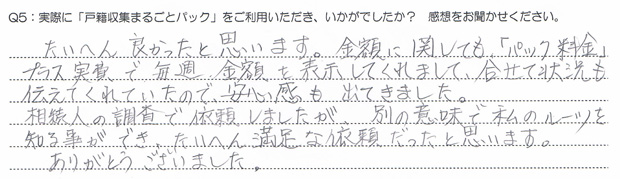 Q5：実際に「戸籍収集まるごとパック」をご利用いただき、いかがでしたか？　感想をお聞かせください。
たいへん良かったと思います。金額に関しても、「パック料金」
プラス実費で毎週、金額を表示してくれまして、合せて状況も
伝えてくれていたので、安心感も出てきました。
相続人の調査で依頼しましたが、別の意味で私のルーツを
知る事ができ、たいへん満足な依頼だったと思います。
ありがとうございました。